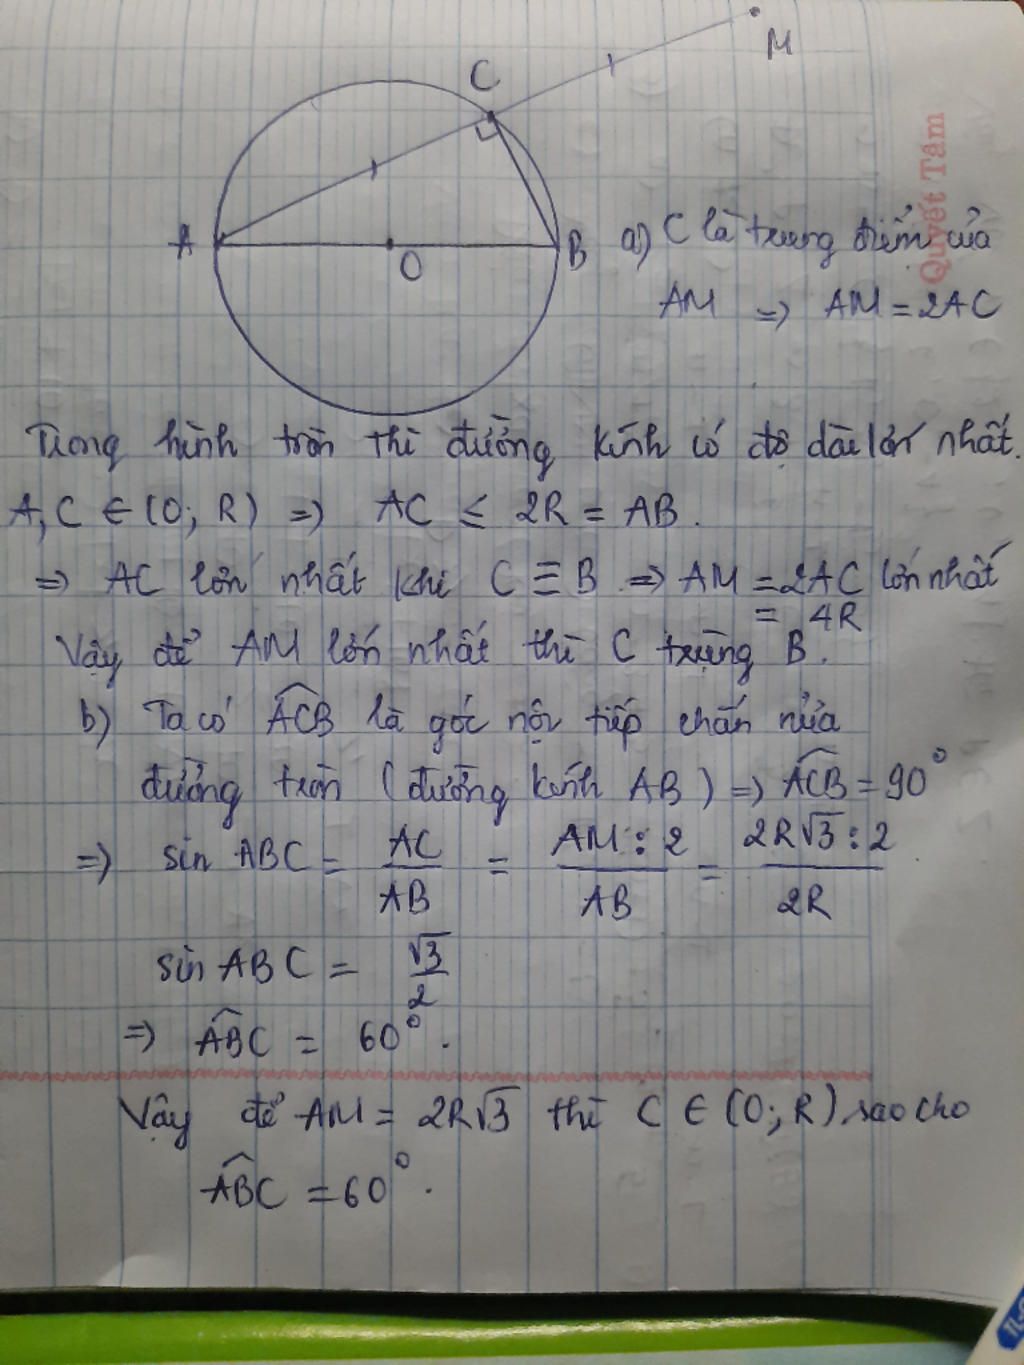 M
C
A
O
B
Quyết Tâm
a) C là trung điểm của
AM => AM = 2AC
Trong hình tròn thì đường kính có độ dài lớn nhất.
A, C ∈ (O; R) => AC ≤ 2R = AB.
=> AC lớn nhất khi C ≡ B => AM = 2AC lớn nhất
= 4R
Vậy để AM lớn nhất thì C trùng B.
b) Ta có ACB là góc nội tiếp chắn nửa
đường tròn (đường kính AB) => ACB = 90°
=> sin ABC = AC/AB = AM : 2/AB = 2R√3 : 2/2R
sin ABC = √3/2
=> ABC = 60°.
Vậy để AM = 2R√3 thì C ∈ (O; R) sao cho
ABC = 60°.